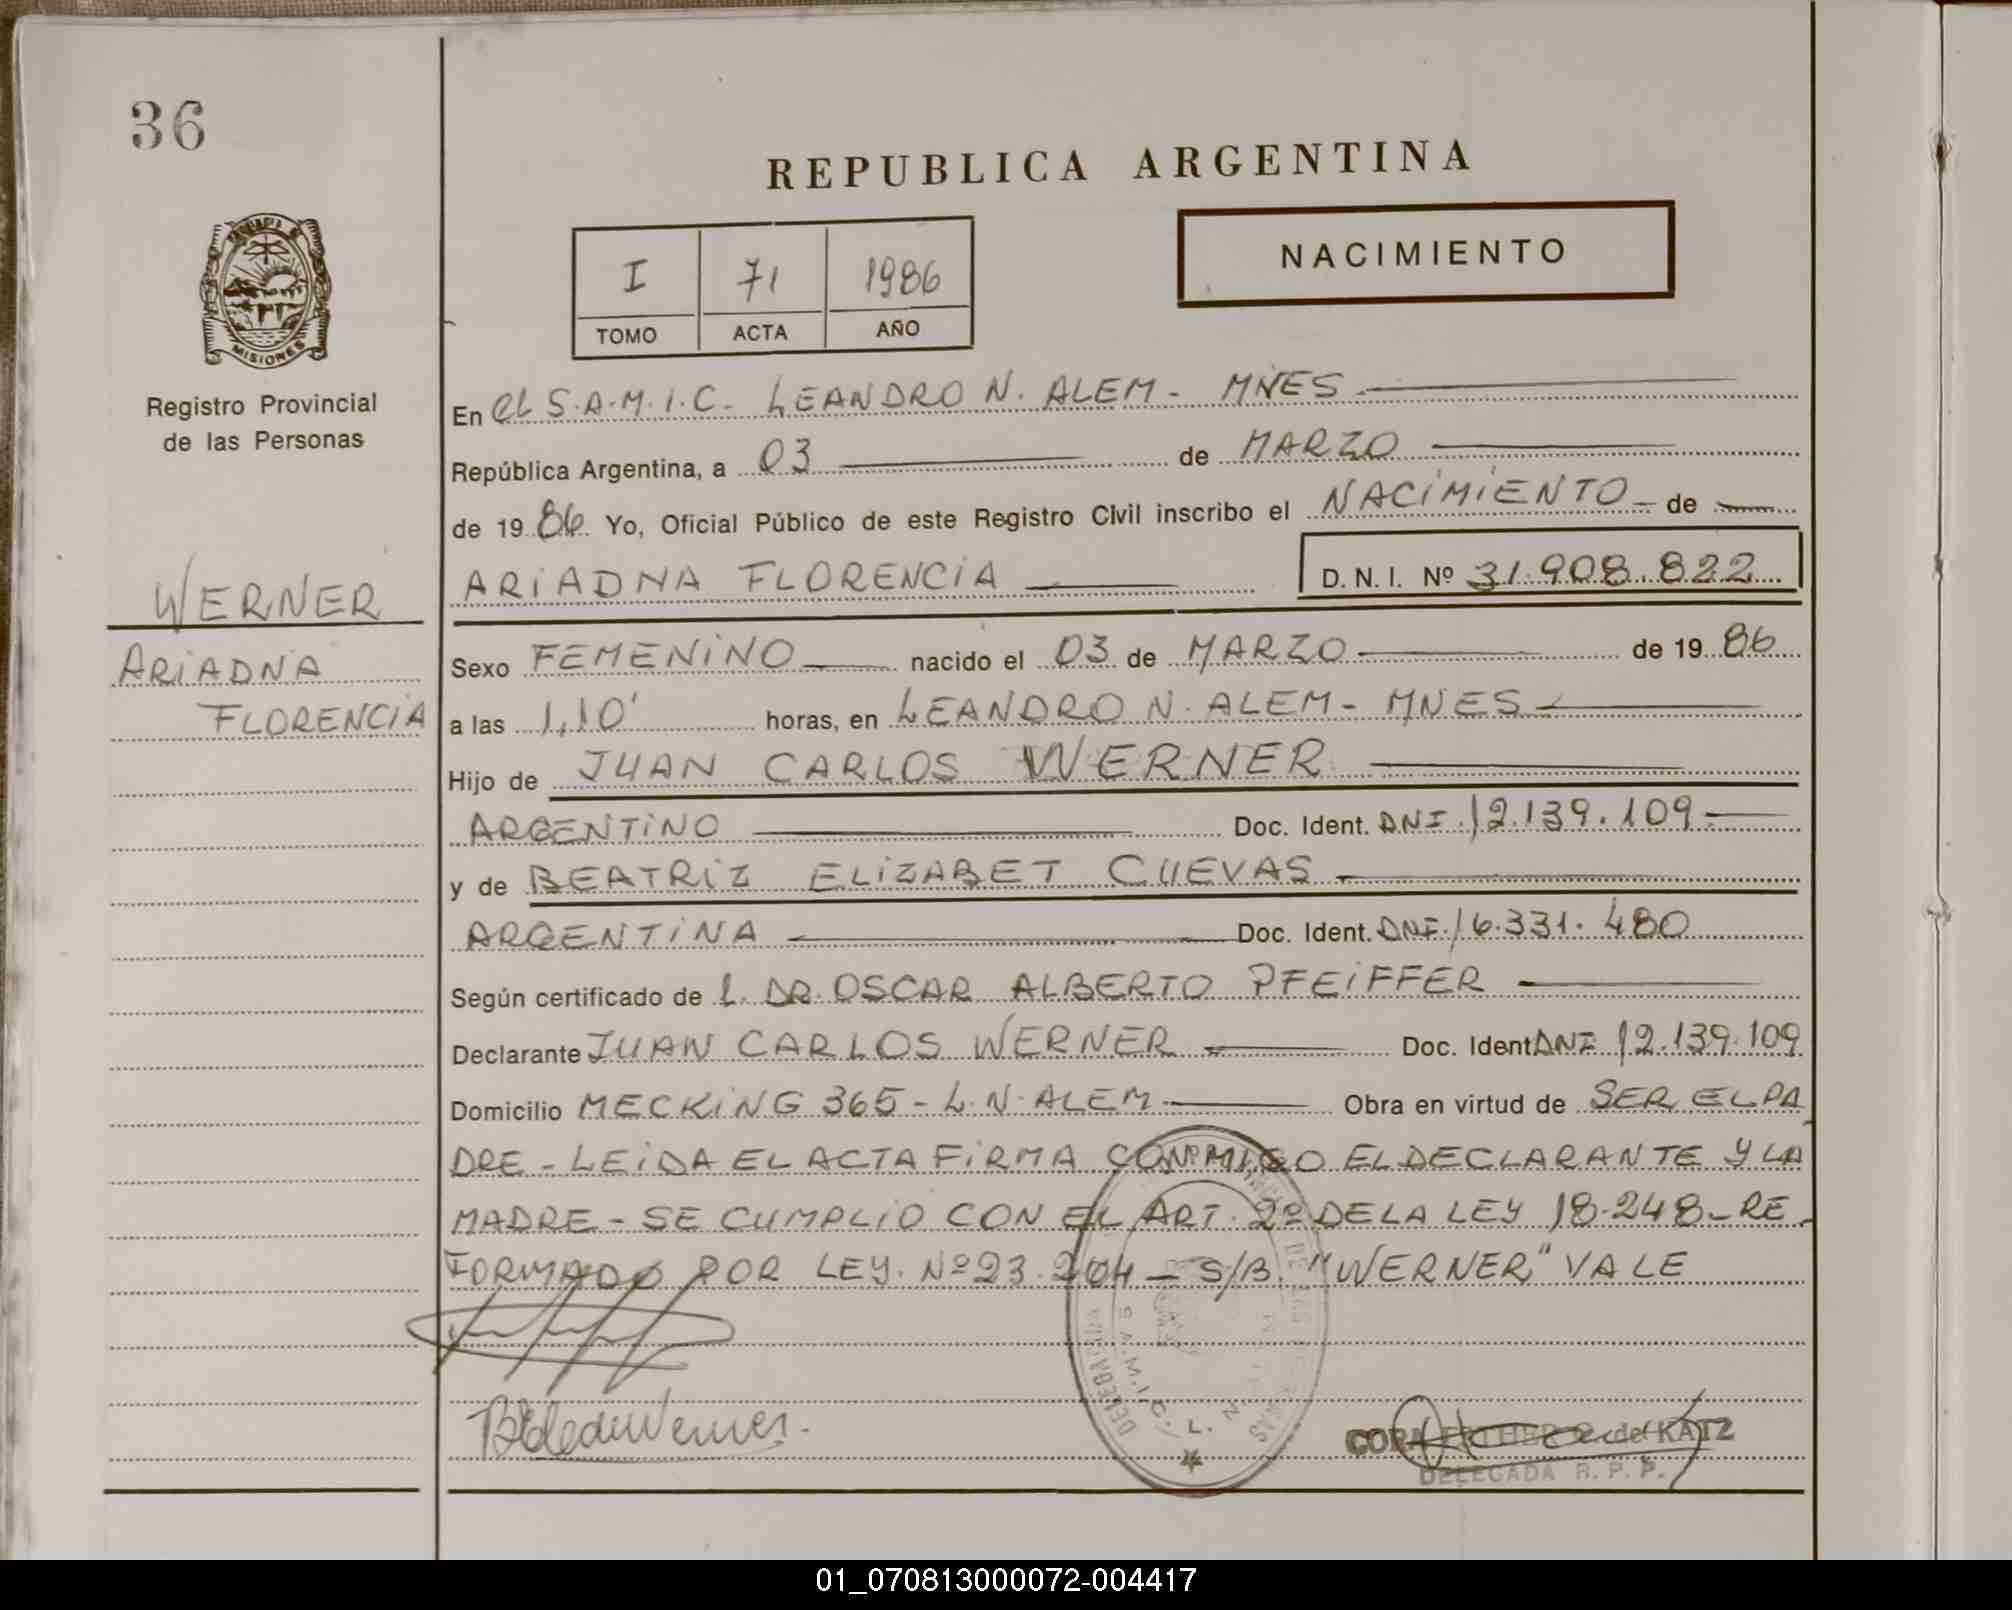 36
REPUBLICA ARGENTINA
I 71 1986
TOMO ACTA AÑO
NACIMIENTO
MISIONES
Registro Provincial
de las Personas
WERNER
ARIADNA
FLORENCIA
En el S.A.M.I.C. LEANDRO N. ALEM - MNES
República Argentina, a 03 de MARZO
de 1986 Yo, Oficial Público de este Registro Civil inscribo el NACIMIENTO de
ARIADNA FLORENCIA D.N.I. Nº 31.908.822
Sexo FEMENINO nacido el 03 de MARZO de 1986
a las 1,10' horas, en LEANDRO N. ALEM - MNES
Hijo de JUAN CARLOS WERNER
ARGENTINO Doc. Ident. DNI. 12.139.109
y de BEATRIZ ELIZABET CUEVAS
ARGENTINA Doc. Ident. DNI. 16.331.480
Según certificado de L. DR. OSCAR ALBERTO PFEIFFER
Declarante JUAN CARLOS WERNER Doc. Ident DNI 12.139.109
Domicilio MECKING 365 - L.N. ALEM Obra en virtud de SER EL PA
DRE - LEIDA EL ACTA FIRMA CONMIGO EL DECLARANTE Y LA
MADRE - SE CUMPLIO CON EL ART. 2º DE LA LEY 18.248 - RE
FORMADO POR LEY. Nº 23.264 - S/B. "WERNER" VALE
S.A.M.I.C. L. N.
de KATZ
DELEGADA R.P.P.
01_070813000072-004417